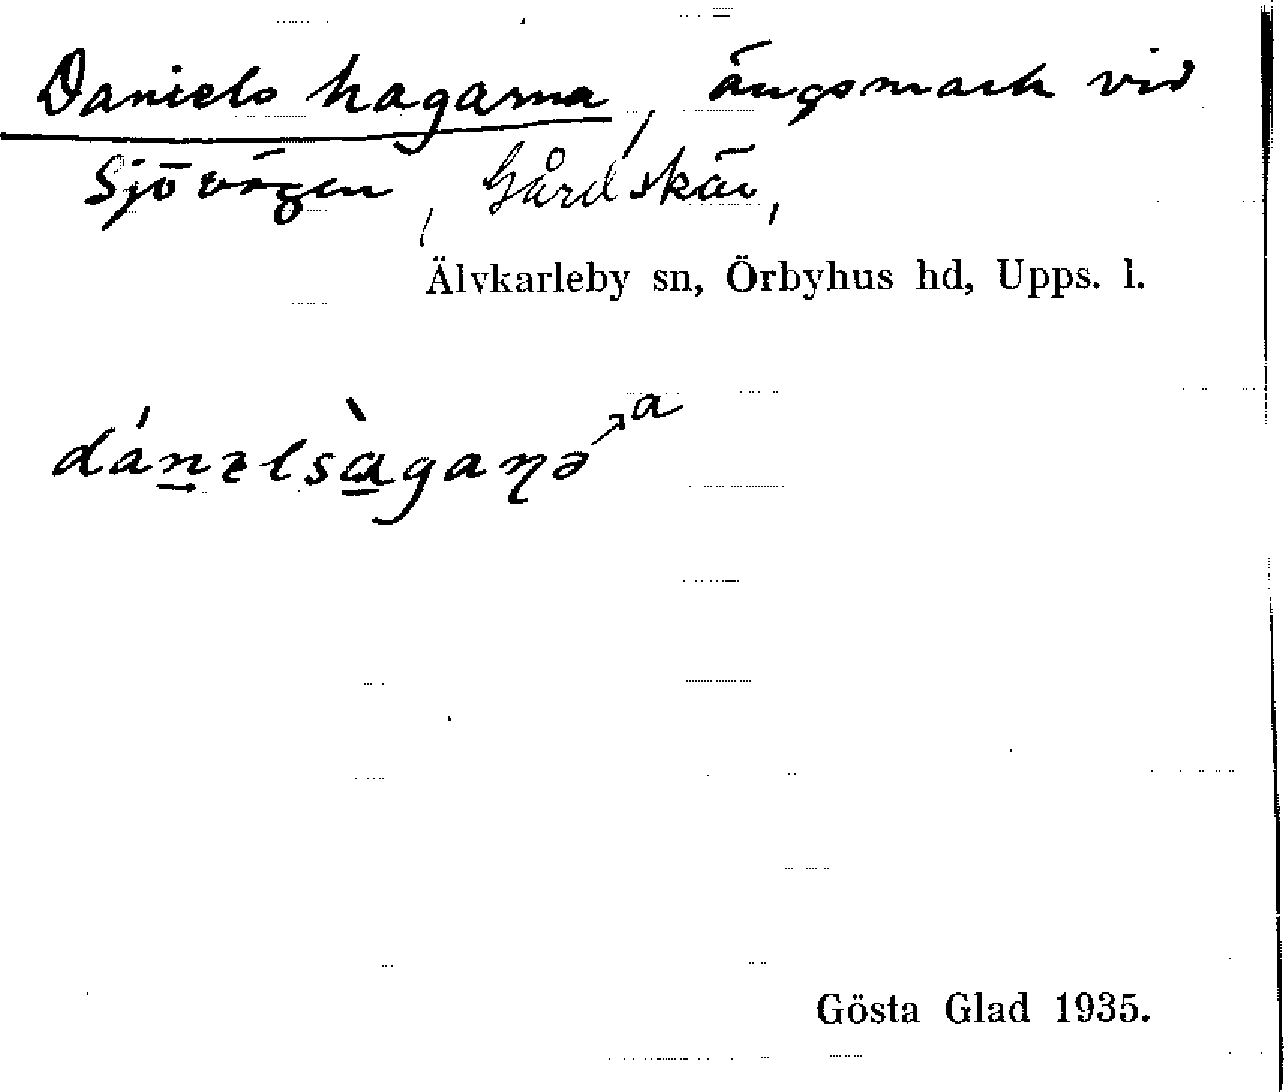 Daniels hagarna, ängsmark vid
Sjövägen, Gårdskär,
Älvkarleby sn, Örbyhus hd, Upps. l.
a
dánɛlsàgaɳə
Gösta Glad 1935.